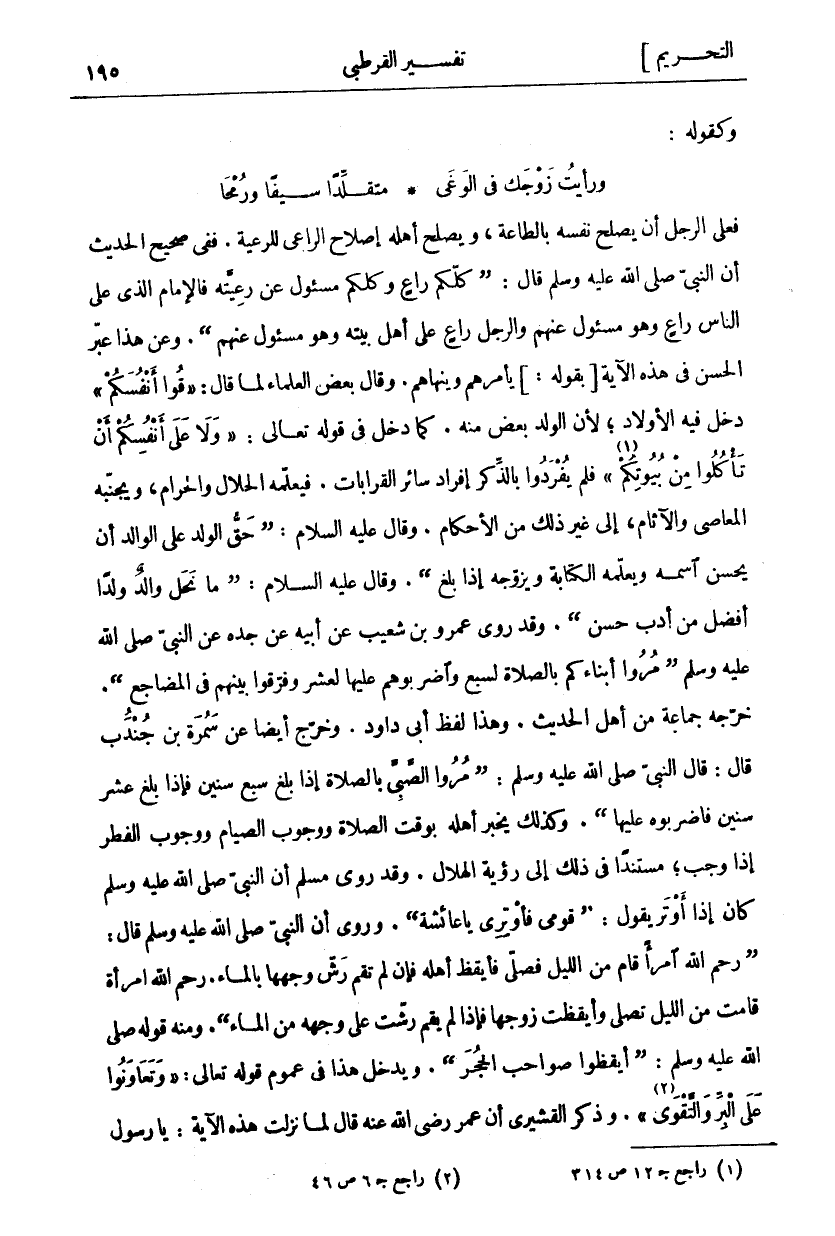 التحريم] تفسير القرطبى ١٩٥
وكقوله :
ورأيتُ زَوْجَك فى الوَغَى * متقلِّدًا سيفًا ورُمْحَا
فعلى الرجل أن يصلح نفسه بالطاعة ، ويصلح أهله إصلاح الراعى للرعية . ففى صحيح الحديث
أن النبىّ صلى الله عليه وسلم قال : ” كلّكم راعٍ وكلكم مسئول عن رعيّته فالإمام الذى على
الناس راعٍ وهو مسئول عنهم والرجل راعٍ على أهل بيته وهو مسئول عنهم “ . وعن هذا عبّر
الحسن فى هذه الآية [ بقوله : ] يأمرهم وينهاهم . وقال بعض العلماء لما قال : « قُوا أَنْفُسَكُمْ »
دخل فيه الأولاد ؛ لأن الولد بعض منه . كما دخل فى قوله تعالى : « وَلَا عَلَى أَنْفُسِكُمْ أَنْ
تَأْكُلُوا مِنْ بُيُوتِكُمْ (١) » فلم يُفْرَدُوا بالذِّكر إفراد سائر القرابات . فيعلّمه الحلال والحرام ، ويجنّبه
المعاصى والآثام ، إلى غير ذلك من الأحكام . وقال عليه السلام : ” حَقُّ الولد على الوالد أن
يحسن آسمه ويعلّمه الكتابة ويزوّجه إذا بلغ “ . وقال عليه السلام : ” ما نَحَل والدٌ ولدًا
أفضل من أدب حسن “ . وقد روى عمرو بن شعيب عن أبيه عن جده عن النبىّ صلى الله
عليه وسلم ” مُرُوا أبناءكم بالصلاة لسبع وآضربوهم عليها لعشر وفرّقوا بينهم فى المضاجع “ .
خرّجه جماعة من أهل الحديث . وهذا لفظ أبى داود . وخرّج أيضا عن سَمُرَة بن جُنْدُب
قال : قال النبىّ صلى الله عليه وسلم : ” مُرُوا الصَّبِىَّ بالصلاة إذا بلغ سبع سنين فإذا بلغ عشر
سنين فاضربوه عليها “ . وكذلك يخبر أهله بوقت الصلاة ووجوب الصيام ووجوب الفطر
إذا وجب ؛ مستندًا فى ذلك إلى رؤية الهلال . وقد روى مسلم أن النبىّ صلى الله عليه وسلم
كان إذا أَوْتَر يقول : ” قومى فأوْتِرِى ياعائشة “ . وروى أن النبىّ صلى الله عليه وسلم قال :
” رحم الله آمرأً قام من الليل فصلّى فأيقظ أهله فإن لم تقم رَشّ وجهها بالماء . رحم الله امرأة
قامت من الليل تصلى وأيقظت زوجها فإذا لم يقم رشّت على وجهه من الماء “ . ومنه قوله صلى
الله عليه وسلم : ” أيقظوا صواحب الحُجَر “ . ويدخل هذا فى عموم قوله تعالى : « وَتَعَاوَنُوا
عَلَى الْبِرِّ وَالتَّقْوَى (٢) » . وذكر القشيرى أن عمر رضى الله عنه قال لما نزلت هذه الآية : يا رسول
(١) راجع جـ ١٢ ص ٣١٤ (٢) راجع جـ ٦ ص ٤٦